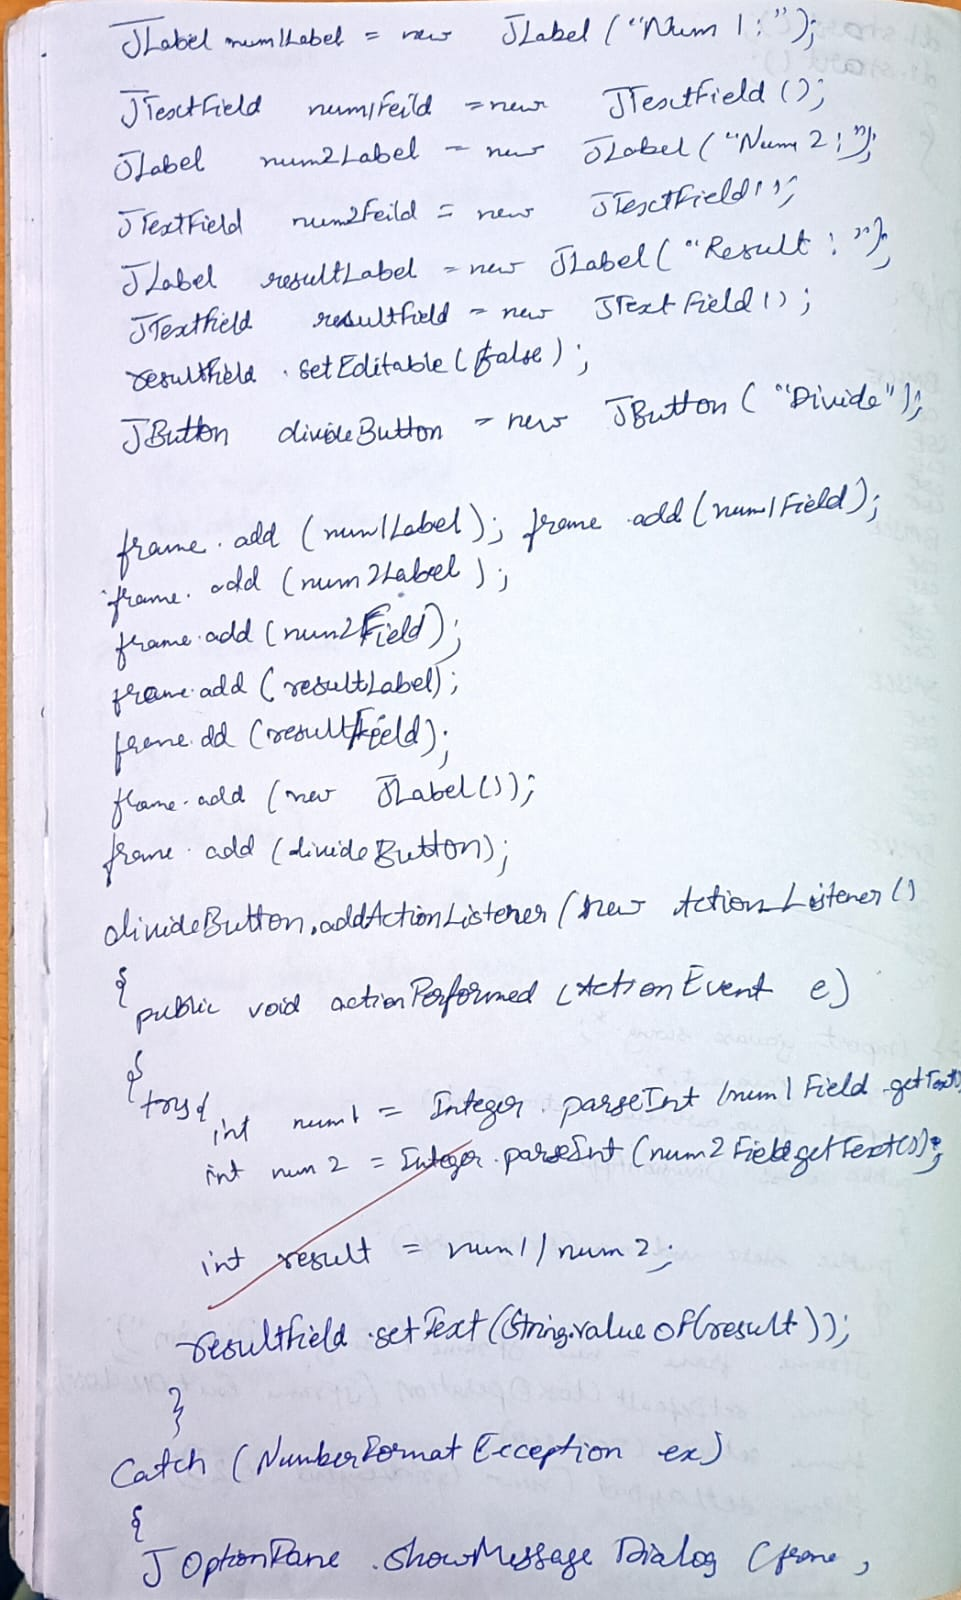 JLabel num1Label = new JLabel ("Num 1 : ");
JTextField num1Feild = new JTextField ();
JLabel num2Label = new JLabel ("Num 2 : ");
JTextField num2Feild = new JTextField ();
JLabel resultLabel = new JLabel ( "Result : ");
JTextField resultField = new JTextField ();
resultField . setEditable (false) ;
JButton divideButton = new JButton ( "Divide");
frame . add (num1Label) ; frame . add (num1Field);
frame . add (num2Label ) ;
frame . add (num2Field);
frame . add (resultLabel);
frame . dd (resultField);
frame . add (new JLabel ());
frame . add (divideButton);
divideButton.addActionListener (new ActionListener ()
{
public void actionPerformed (ActionEvent e)
{
try {
int num1 = Integer . parseInt (num1Field .getText()
int num2 = Integer . parseInt (num2Field getText());
int result = num1 / num2 ;
resultField .setText (String.valueOf(result));
}
Catch (NumberFormatException ex)
{
JOptionPane . showMessageDialog (frame ,